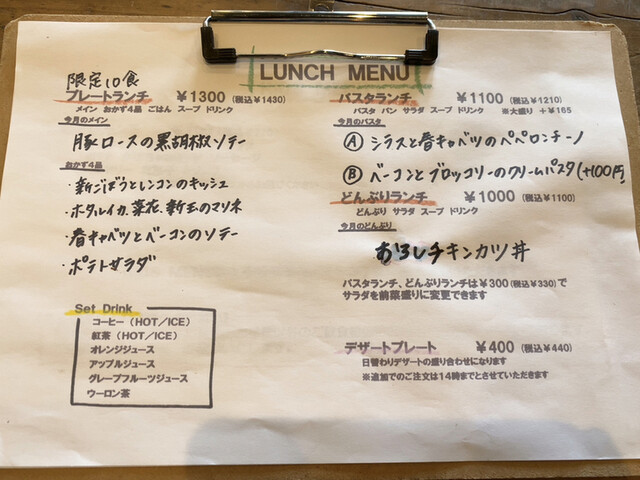 LUNCH MENU
限定10食
プレートランチ ¥1300 (税込¥1430)
メイン おかず4品 ごはん スープ ドリンク
今月のメイン
豚ロースの黒胡椒ソテー
おかず4品
・新ごぼうとレンコンのキッシュ
・ホタルイカ、菜花、新玉のマリネ
・春キャベツとベーコンのソテー
・ポテトサラダ
Set Drink
コーヒー (HOT/ICE)
紅茶 (HOT/ICE)
オレンジジュース
アップルジュース
グレープフルーツジュース
ウーロン茶
パスタランチ ¥1100 (税込¥1210)
パスタ パン サラダ スープ ドリンク ※大盛り +¥165
今月のパスタ
Ⓐ シラスと春キャベツのペペロンチーノ
Ⓑ ベーコンとブロッコリーのクリームパスタ(+100円)
どんぶりランチ ¥1000 (税込¥1100)
どんぶり サラダ スープ ドリンク
今月のどんぶり
おろしチキンカツ丼
パスタランチ、どんぶりランチは¥300 (税込¥330) で
サラダを前菜盛りに変更できます
デザートプレート ¥400 (税込¥440)
日替わりデザートの盛り合わせになります
※追加でのご注文は14時までとさせていただきます